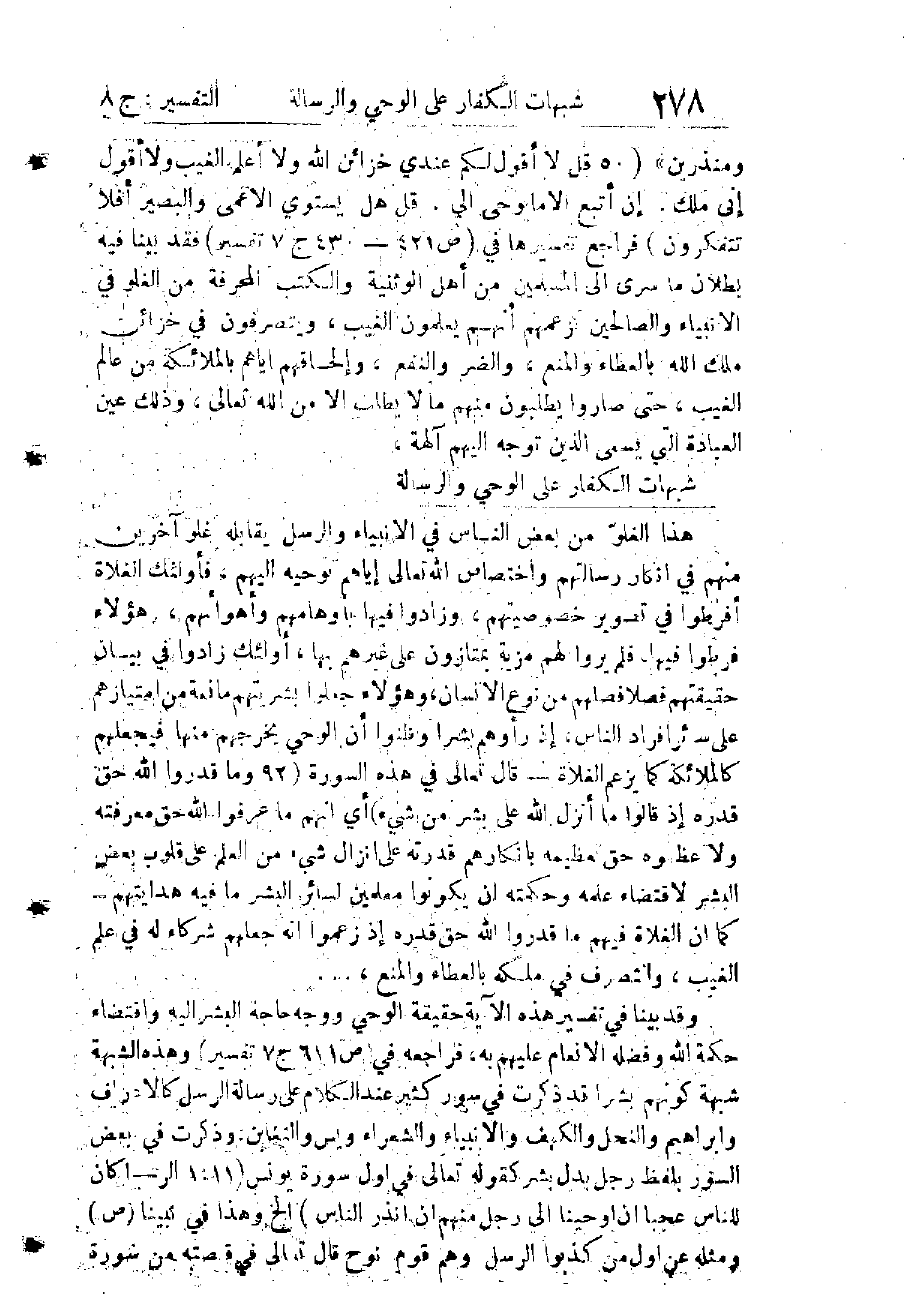 ٢٧٨ شبهات الكفار على الوحي والرسالة التفسير : ج ٨
ومنذرين» ( ٥٠ قل لا أقول لكم عندي خزائن الله ولا أعلم الغيب ولا أقول
إني ملك . إن أتبع الا ما يوحى الي . قل هل يستوي الاعمى والبصير أفلا
تتفكرون ) فراجع تفسيرها في ( ص ٤٢١ — ٤٣٠ ج ٧ تفسير ) فقد بينا فيه
بطلان ما سرى الى المسلمين من أهل الوثنية والكتب المحرفة من الغلو في
الانبياء والصالحين بزعمهم أنهم يعلمون الغيب ، ويتصرفون في خزائن
ملك الله بالعطاء والمنع ، والضر والنفع ، وإلحاقهم اياهم بالملائكة من عالم
الغيب ، حتى صاروا يطلبون منهم ما لا يطلب الا من الله تعالى ، وذلك عين
العبادة التي يسمى الذين توجه اليهم آلهة ،
شبهات الكفار على الوحي والرسالة
هذا الغلوّ من بعض الناس في الانبياء والرسل يقابله غلو آخرين
منهم في انكار رسالتهم واختصاص الله تعالى إياهم بوحيه اليهم ، فأولئك الغلاة
أفرطوا في تصوير خصوصيتهم ، وزادوا فيها بأوهامهم وأهوائهم ، وهؤلاء
فرطوا فيها، فلم يروا لهم مزية يمتازون على غيرهم بها ، أولئك زادوا في بيان
حقيقتهم فصلا فصلهم من نوع الانسان، وهؤلاء جعلوا بشريتهم مانعة من امتيازهم
على سائر أفراد الناس، إذ رأوهم بشرا وظنوا أن الوحي يخرجهم منها فيجعلهم
كالملائكة كما يزعم الغلاة — قال تعالى في هذه السورة ( ٩٢ وما قدروا الله حق
قدره إذ قالوا ما أنزل الله على بشر من شيء) أي انهم ما عرفوا الله حق معرفته
ولا عظموه حق تعظيمه بانكارهم قدرته على انزال شيء من العلم على قلوب بعض
البشر لاقتضاء علمه وحكمته ان يكونوا معلمين لسائر البشر ما فيه هدايتهم —
كما ان الغلاة فيهم ما قدروا الله حق قدره إذ زعموا انه جعلهم شركاء له في علم
الغيب ، والتصرف في ملكه بالعطاء والمنع ، ....
وقد بينا في تفسير هذه الآية حقيقة الوحي ووجه حاجة البشر اليه واقتضاء
حكمة الله وفضله الانعام عليهم به، فراجعه في ( ص ٦١١ ج ٧ تفسير ) وهذه الشبهة
شبهة كونهم بشرا قد ذكرت في سور كثير عند الكلام على رسالة الرسل كالاعراف
وابراهيم والنحل والكهف والانبياء والشعراء ويس والتغابن. وذكرت في بعض
السور بلفظ رجل بدل بشر كقوله تعالى في اول سورة يونس ( ١:١١ الر — اكان
للناس عجبا ان اوحينا الى رجل منهم ان انذر الناس ) الخ وهذا في نبينا ( ص )
ومثله عن اول من كذبوا الرسل وهم قوم نوح قال تعالى في قصته من سورة